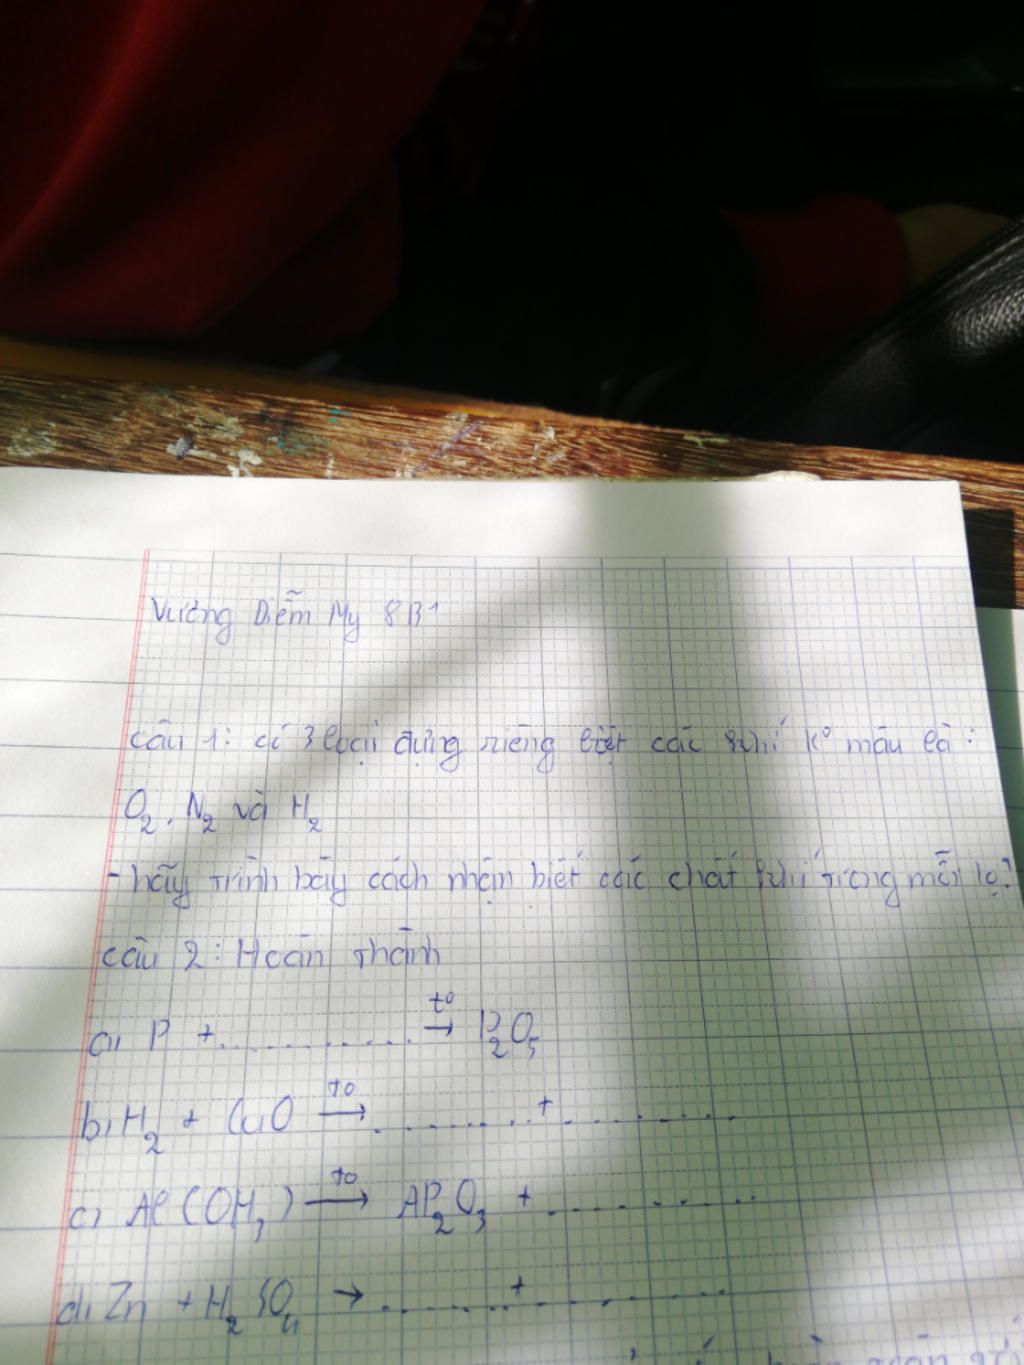 Vương Diễm My 8B1
câu 1: có 3 loại đựng riêng biệt các khí k° màu là:
O₂, N₂ và H₂
- hãy trình bày cách nhận biết các chất khí trong mỗi lọ?
câu 2: Hoàn thành
a) P + ............ t° → P₂O₅
b) H₂ + CuO t° → .......... + ..........
c) Al(OH₃) t° → Al₂O₃ + ..........
d) Zn + H₂SO₄ → ........ + ..........